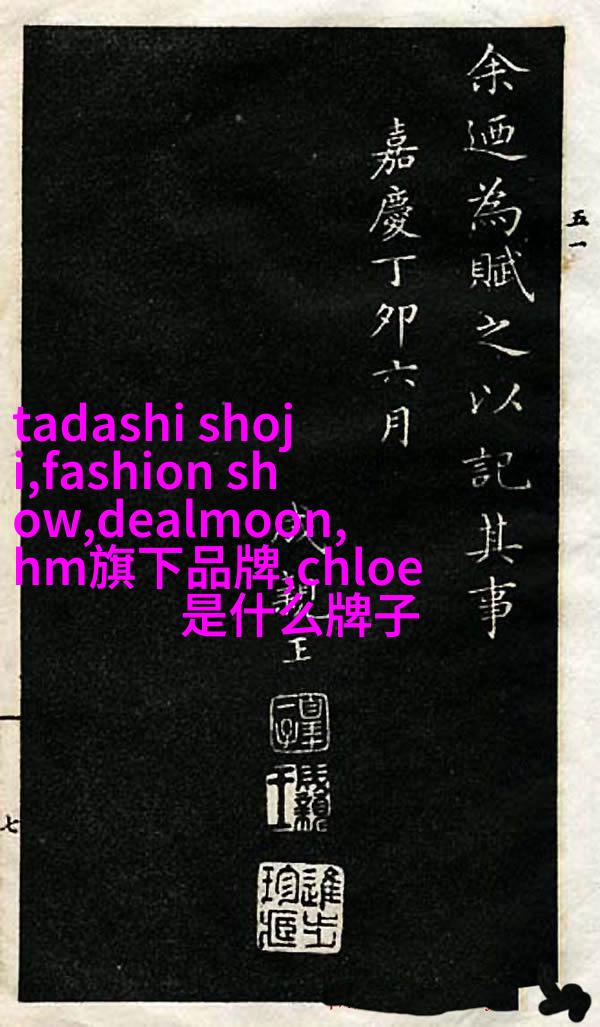 余迺為賦之以記其事
嘉慶丁卯六月
成親王
皇十一子
成親王
詒晉齋印
五一
七
tadashi shoj
i,fashion sh
ow,dealmoon,
hm旗下品牌,chloe
是什么牌子